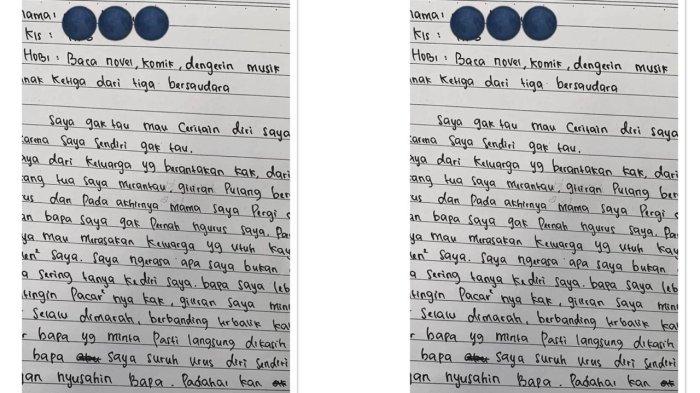 Nama:
Kls :
Hobi : Baca novel, komik, dengerin musik
nak ketiga dari tiga bersaudara
Saya gak tau mau ceritain diri saya
karena saya sendiri gak tau.
aya dari keluarga yg berantakan kak, dari
ang tua saya merantau, giliran pulang ber
us dan pada akhirnya mama saya pergi
an bapa saya gak pernah ngurus saya. Pa
ya mau merasakan keluarga yg utuh kay
en² saya. saya ngerasa apa saya bukan
a sering tanya ke diri saya. bapa saya leb
tingin pacar² nya kak, giliran saya min
selalu dimarah, berbanding terbalik ka
r bapa yg minta pasti langsung dikasih
bapa saya suruh urus diri sendiri
an nyusahin Bapa. Padahal kan
ama:
Kls :
Hobi : Baca novel, komik, dengerin musik
nak ketiga dari tiga bersaudara
Saya gak tau mau ceritain diri saya
karena saya sendiri gak tau.
aya dari keluarga yg berantakan kak, dari
ang tua saya merantau, giliran pulang ber
us dan pada akhirnya mama saya pergi
an bapa saya gak pernah ngurus saya. Pa
ya mau merasakan keluarga yg utuh kay
en² saya. saya ngerasa apa saya bukan
a sering tanya ke diri saya. bapa saya leb
tingin pacar² nya kak, giliran saya min
selalu dimarah, berbanding terbalik ka
r bapa yg minta pasti langsung dikasih
bapa saya suruh urus diri sendiri
an nyusahin Bapa. Padahal kan